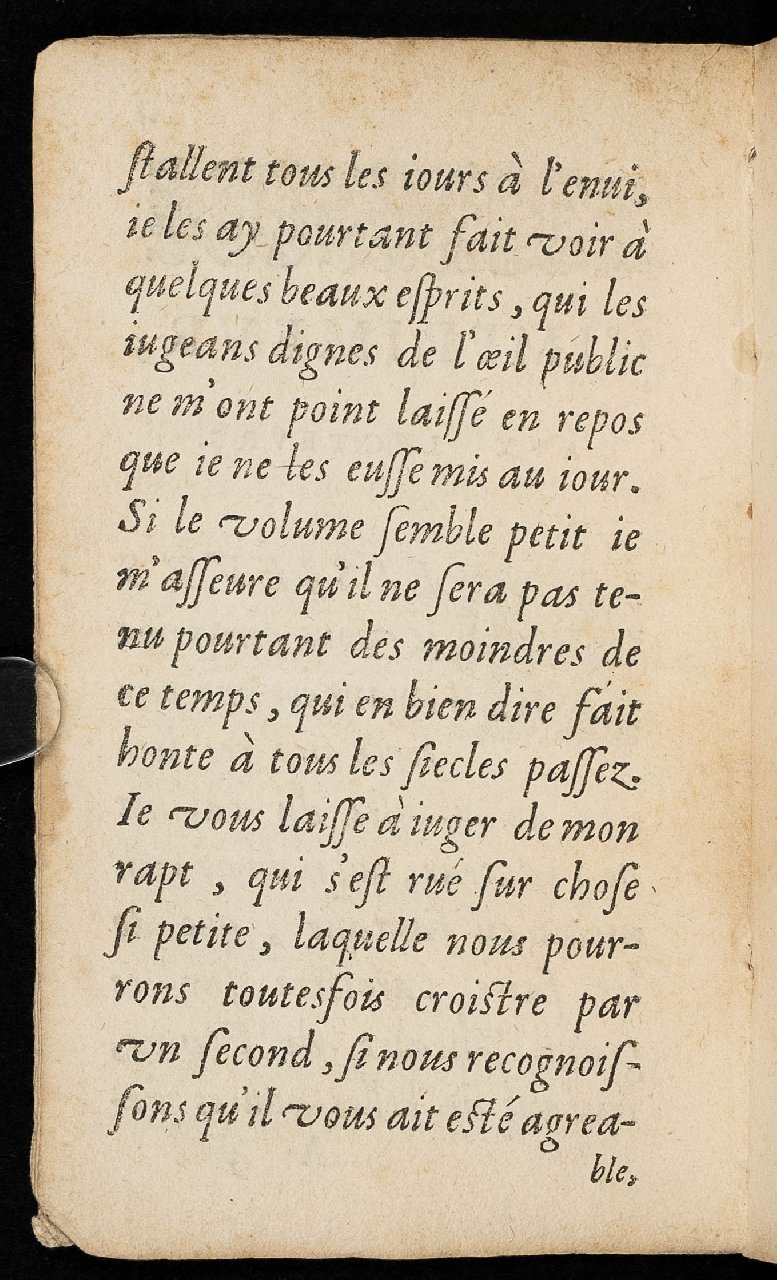 ſtallent tous les iours à l'enui,
ie les ay pourtant fait voir à
quelques beaux eſprits, qui les
iugeans dignes de l'œil public
ne m'ont point laiſſé en repos
que ie ne les euſſe mis au iour.
Si le volume ſemble petit ie
m'aſſeure qu'il ne ſera pas te-
nu pourtant des moindres de
ce temps, qui en bien dire fait
honte à tous les ſiecles paſſez.
Ie vous laiſſe à iuger de mon
rapt, qui s'eſt rué ſur choſe
ſi petite, laquelle nous pour-
rons toutesfois croiſtre par
vn ſecond, ſi nous recognoiſ-
ſons qu'il vous ait eſté agrea-
ble,